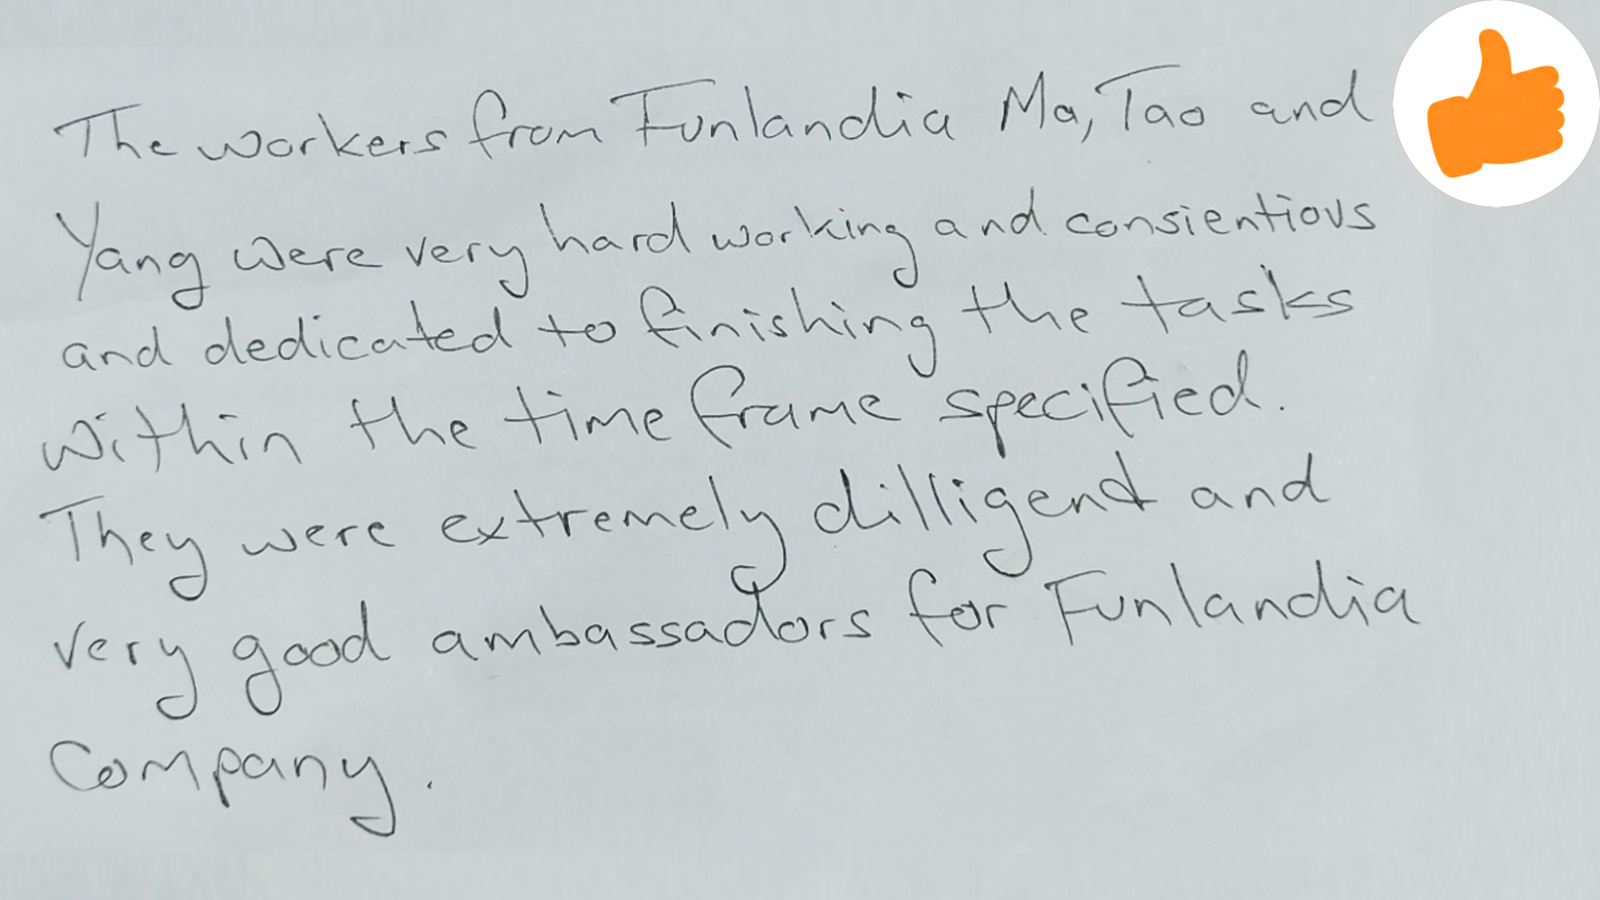 The workers from Funlandia Ma, Tao and
Yang were very hard working and consientious
and dedicated to finishing the tasks
within the time frame specified.
They were extremely dilligent and
very good ambassadors for Funlandia
Company.